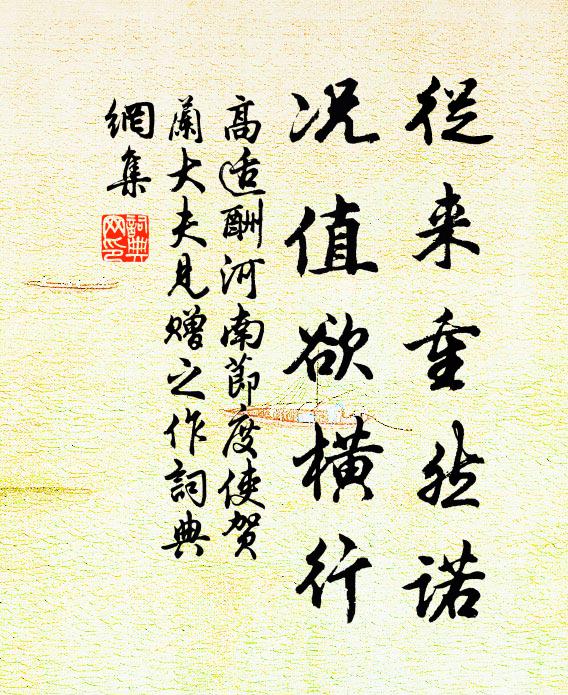 從来重然诺
况值欲横行
高适酬河南節度使贺
蘭大夫見赠之作詞典
網集
詞典
网印